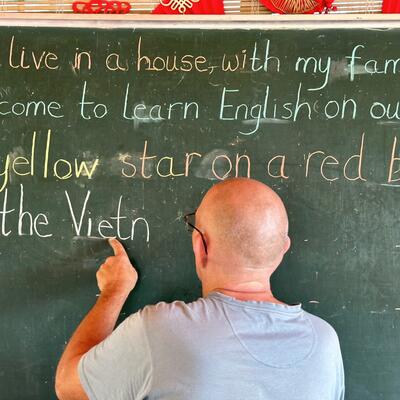 live in a house, with my fam
come to learn English on ou
yellow star on a red b
the Vietn